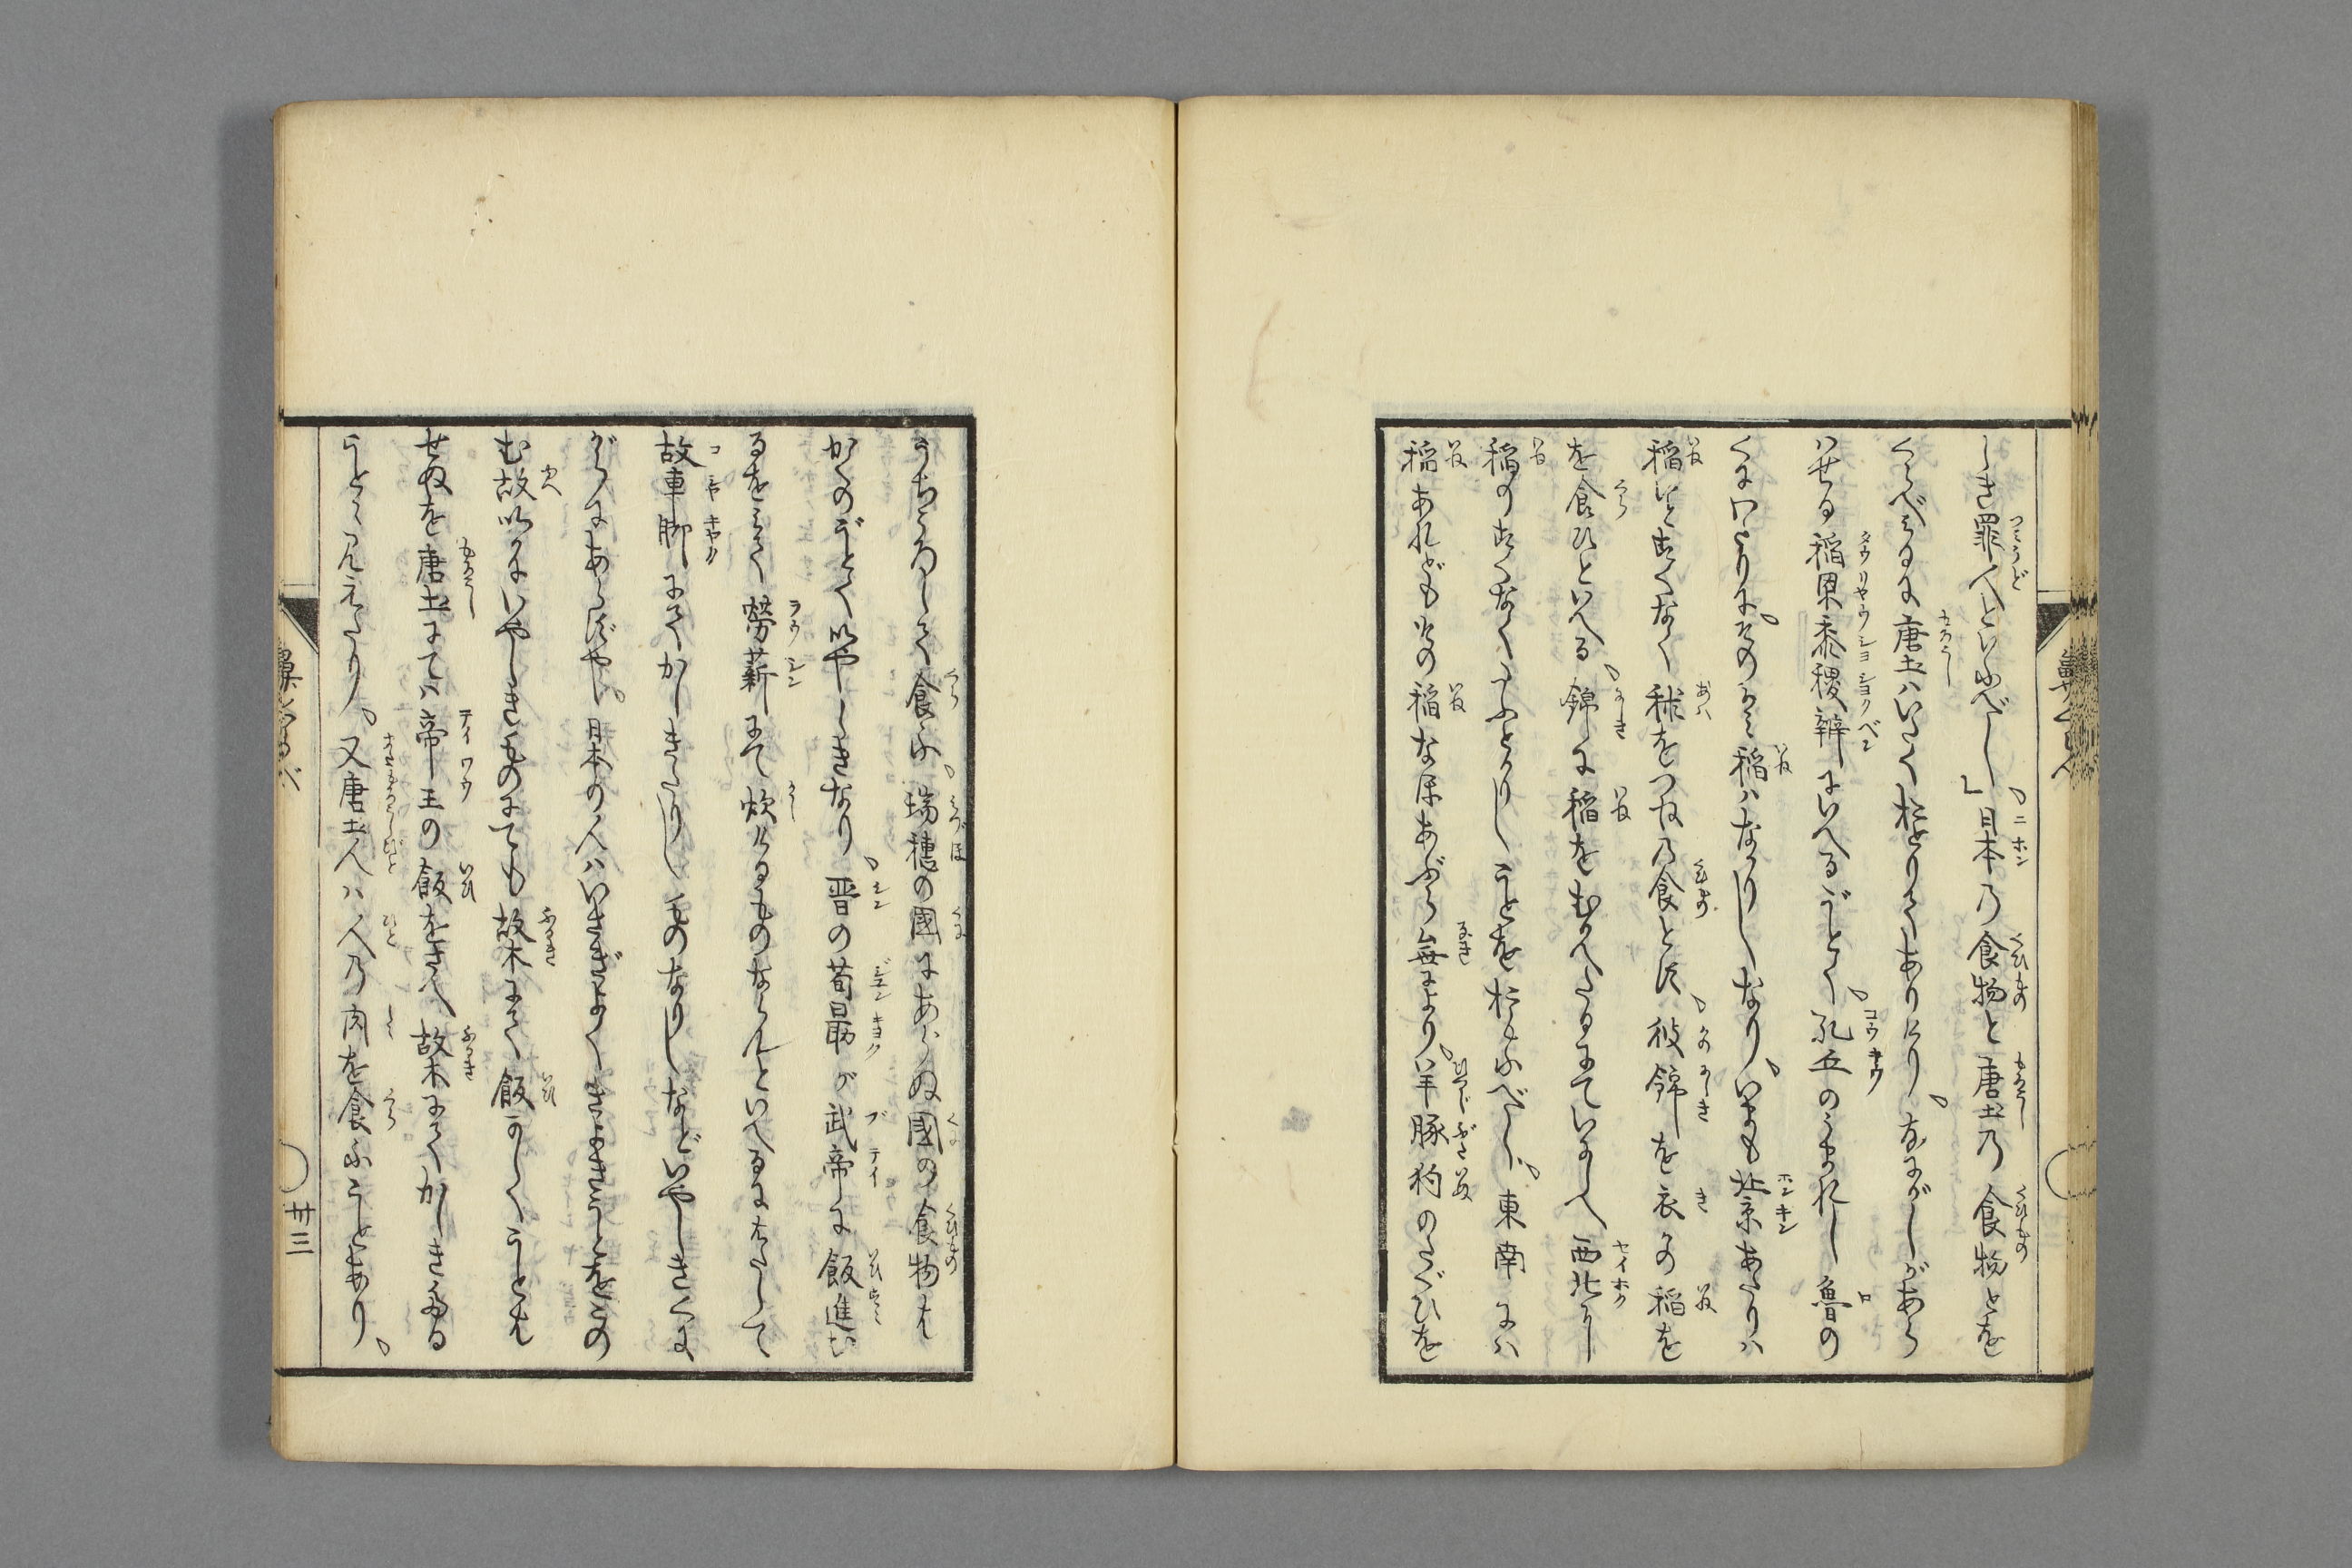 しき罪人といふべし」日本の食物と唐土の食物とを
くらべみるに唐土ハいたくおとりてありけり、なにがしがあら
はせる稲粱黍稷辨にいへるごとく、孔丘のうまれし魯の
くにのわたりに、そのかみ稲ハなかりしなり、いまも北京あたりハ
稲いとすくなく秫をつねの食とす、彼錦を衣かの稲を
を食ひといへる、錦に稲をむかへたるにていにしへ西北にハ
稲のすくなくたふとかりしことをおもふべし、東南にハ
稲あれどもその稲なほあぶら無により、羊豚狗のたぐひを
うちころして食ふ、瑞穂の國にあらぬ國の食物は
かくのごとくいやしきなり、晋の荀勗が武帝に飯進い
るをみて勞薪にて炊けるものならんといへるにはたして
故車脚にてかしきたりしものなりしなどいやしきくに
がらにあらずや、日本の人ハいさぎよくきよきことをこの
む故いかにいやしきものにても故木にて飯かしくことは
せぬを唐土にてハ帝王の飯をさへ故木にてかしきたる
こと見えたり、又唐土人ハ人の肉を食ふことあり、
卅三